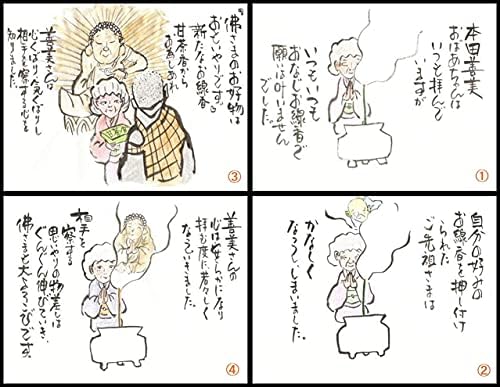 本田善美
おばあちゃんは
いつも拝んで
いますが
いつもいつも
おなじお線香で
願は叶いません
でした。
①
自分の好みの
お線香を押し付け
られた
ご先祖さまは
かなしく
なってしまいました。
②
"佛さまのお好物は
おもいやりです。"
新たなお線香
甘茶香から
お為しあれ
善美さんは
心くばり、気くばりし
相手を察する心を
知りました。
③
善美さんの
心は安らかになり
拝む度に若々しく
なっていきました。
相手を
察する
思いやりの物差しは
ぐんぐん伸びてゆき、
佛さまも大よろこびです。
④